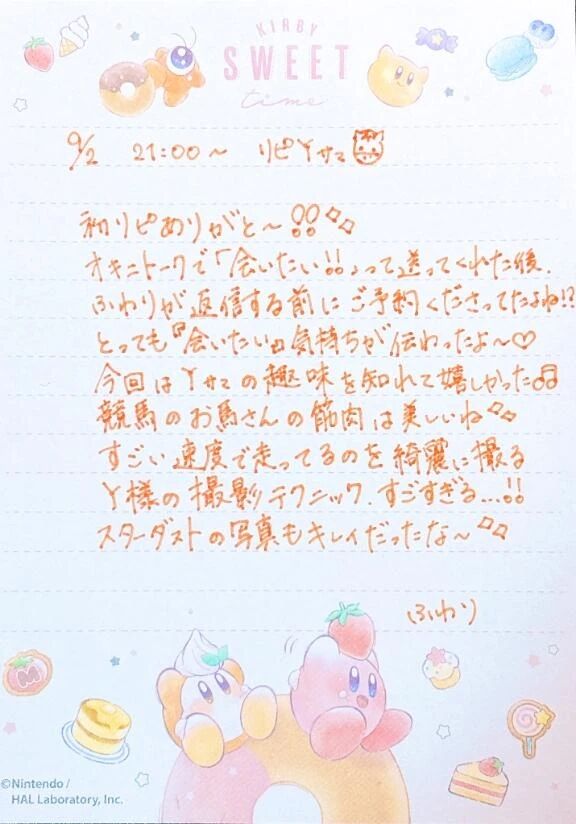 KIRBY
SWEET
time
9/2 21:00～ リピYサマ
初リピありがと～!!
オキニトークで「会いたい!!」って送ってくれた後、
ふわりが返信する前にご予約くださってたよね!?
とっても『会いたい』気持ちが伝わったよ～♡
今回はYサマの趣味を知れて嬉しかった♫
競馬のお馬さんの筋肉は美しいね
すごい速度で走ってるのを綺麗に撮る
Y様の撮影テクニック、すごすぎる...!!
スターダストの写真もキレイだったな～
ふわり
M
©Nintendo /
HAL Laboratory, Inc.